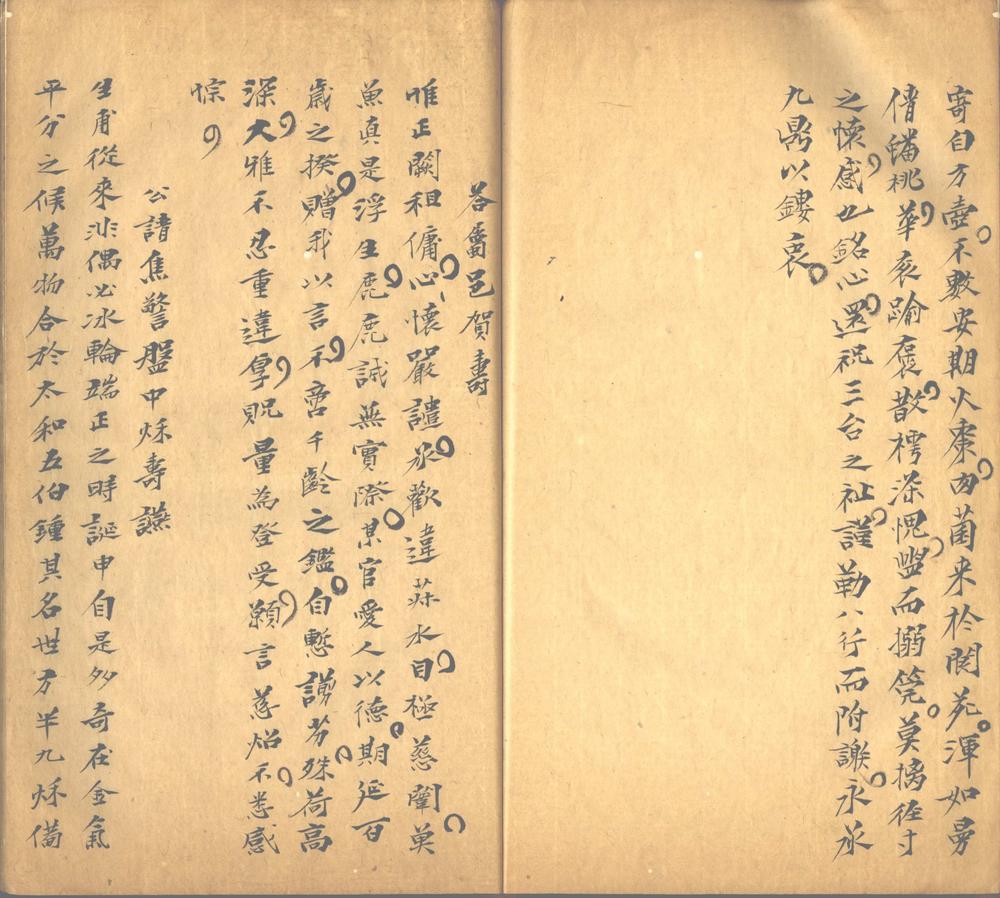 寄自方壺不數安期火棗函菌來於閬苑渾如曼
倩蟠桃華袞踰褒散樗深愧盥而搦筦莫摛徑寸
之懷感也銘心還祝三台之祉謹勒八行而附謝永承
九鼎以鏤衷
答屬邑賀壽
惟正闕租傭心懷嚴譴承歡違菽水目極慈闈萸
魚真是浮生鹿鹿誠無實際某官愛人以德期延百
歲之揆贈我以言不啻千齡之鑑自慙謭劣殊荷高
深大雅不忍重違厚貺量為登受顙言慈炤不悉感
悰
公請焦警盤中秌壽讌
生甫從來非偶必冰輪端正之時誕申自是多奇在金氣
平分之候萬物合於太和五伯鍾其名世方羊九秌備